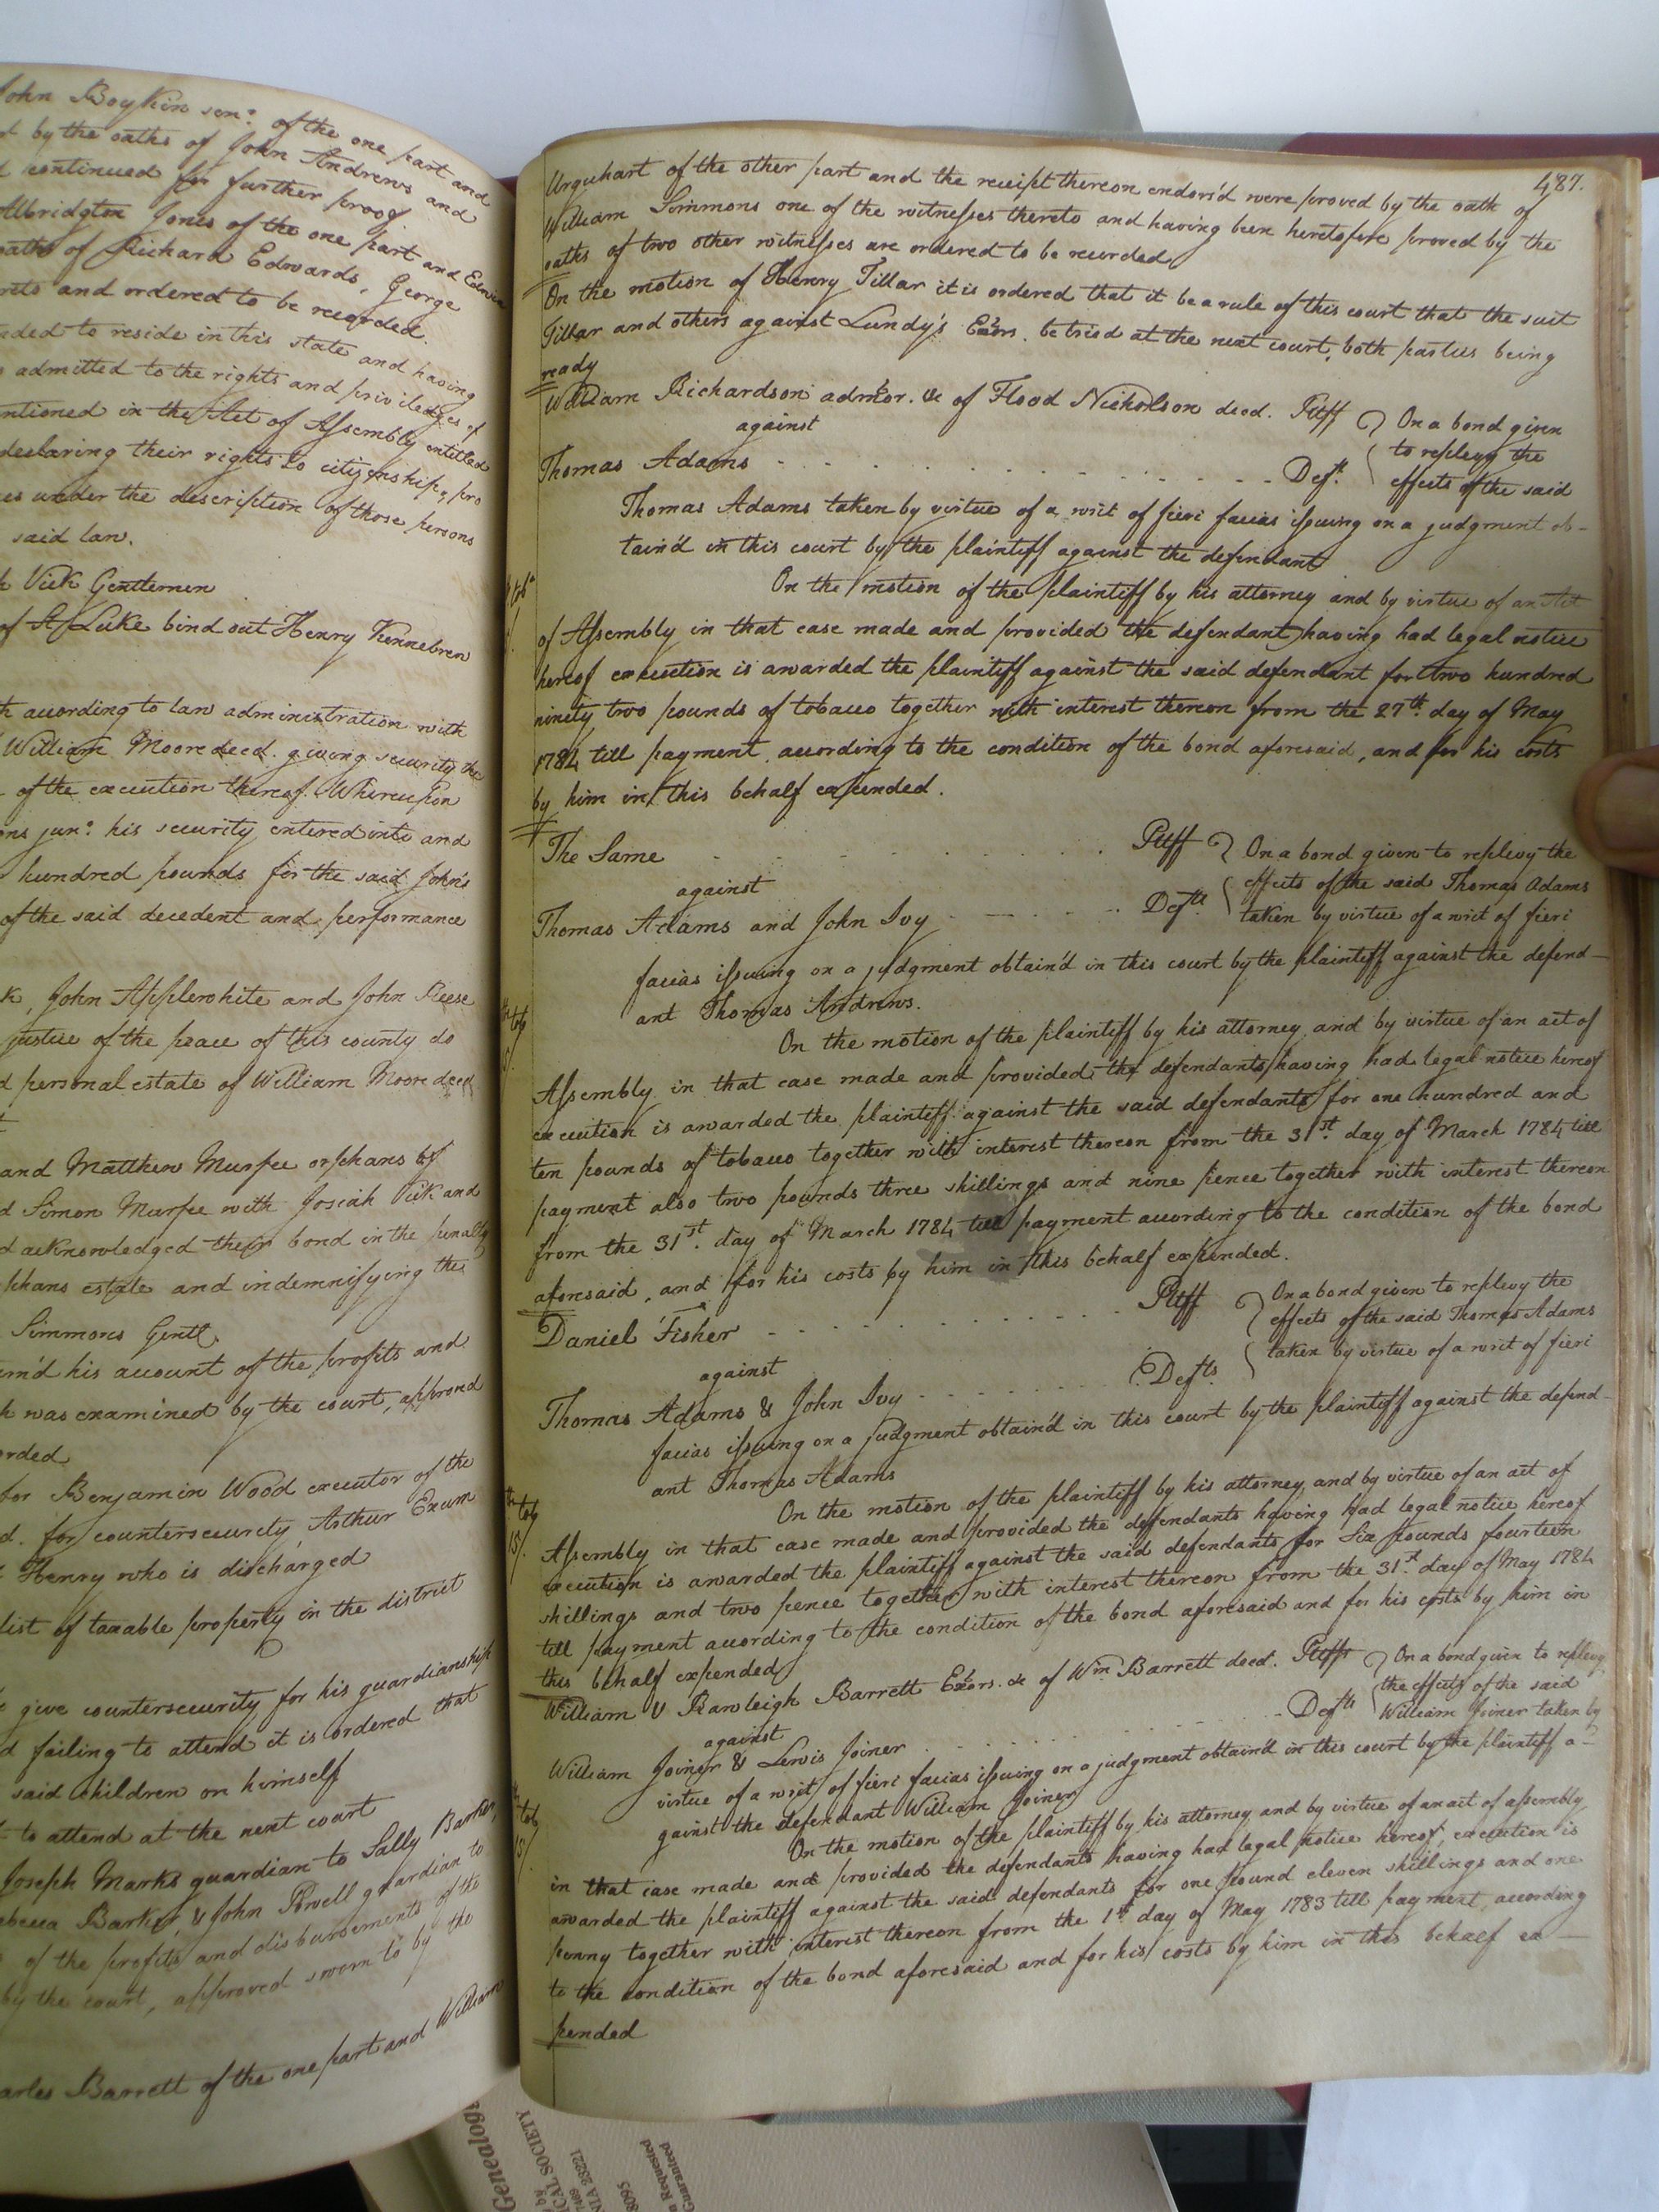 John Boykin senr. of the one part and
by the oaths of John Andrews and
continued for further proof
Albridgton Jones of the one part and Edwin
oaths of Richard Edwards, George
and ordered to be recorded.
to reside in this state and having
admitted to the rights and priviledges of
mentioned in the Act of Assembly entitled
declaring their rights to citizenship, pro
under the description of those persons
said law.
Vick Gentlemen
of St. Luke bind out Henry Kennebrew
according to law administration with
William Moore deced. giving security the
of the execution thereof. Whereupon
junr. his security entered into and
hundred pounds for the said John's
of the said decedent and performance
John Applewhite and John Reese
justice of the peace of this county do
personal estate of William Moore deced
and Matthew Murfee orphans of
Simon Murfee with Josiah Vick and
acknowledged their bond in the penalty
orphans estate and indemnifying the
Simmons Gentl.
his account of the profits and
was examined by the court, approved
for Benjamin Wood executor of the
for countersecurity, Arthur Exum
Henry who is discharged
list of taxable property in the district
give countersecurity for his guardianship
failing to attend it is ordered that
said children on himself
to attend at the next court
Joseph Marks guardian to Sally Barker,
Barker, & John Powell guardian to
of the profits and disbursements of the
by the court, approved sworn to by the
Barrett of the one part and William
487.
Urquhart of the other part and the receipt thereon endors'd were proved by the oath of
William Simmons one of the witnesses thereto and having been heretofore proved by the
oaths of two other witnesses are ordered to be recorded
On the motion of Henry Tillar it is ordered that it be a rule of this court that the suit
Tillar and others against Lundy's Exors. be tried at the next court, both parties being
ready
William Richardson admor. &c of Flood Nicholson deced. Pltff } On a bond given
against to replevy the
Thomas Adams Deft. effects of the said
Thomas Adams taken by virtue of a writ of fieri facias issuing on a judgment ob-
tain'd in this court by the plaintiff against the defendant
On the motion of the plaintiff by his attorney and by virtue of an Act
of Assembly in that case made and provided the defendant having had legal notice
hereof execution is awarded the plaintiff against the said defendant for two hundred
ninety two pounds of tobacco together with interest thereon from the 27th. day of May
1784 till payment according to the condition of the bond aforesaid, and for his costs
by him in this behalf expended.
The Same Pltff } On a bond given to replevy the
against effects of the said Thomas Adams
Thomas Adams and John Ivy Defts. taken by virtue of a writ of fieri
facias issuing on a judgment obtain'd in this court by the plaintiff against the defend-
ant Thomas Andrews.
On the motion of the plaintiff by his attorney and by virtue of an act of
Assembly in that case made and provided the defendants having had legal notice hereof
execution is awarded the plaintiff against the said defendants for one hundred and
ten pounds of tobacco together with interest thereon from the 31st. day of March 1784 till
payment also two pounds three shillings and nine pence together with interest thereon
from the 31st. day of March 1784 till payment according to the condition of the bond
aforesaid, and for his costs by him in this behalf expended.
Daniel Fisher Pltff } On a bond given to replevy the
against effects of the said Thomas Adams
Thomas Adams & John Ivy Defts. taken by virtue of a writ of fieri
facias issuing on a judgment obtain'd in this court by the plaintiff against the defend-
ant Thomas Adams
On the motion of the plaintiff by his attorney and by virtue of an act of
Assembly in that case made and provided the defendants having had legal notice hereof
execution is awarded the plaintiff against the said defendants for Six pounds fourteen
shillings and two pence together with interest thereon from the 31st. day of May 1784
till payment according to the condition of the bond aforesaid and for his costs by him in
this behalf expended
William & Rawleigh Barrett Exors. &c of Wm Barrett deced. Pltffs } On a bond given to replevy
against the effects of the said
William Joiner & Lewis Joiner Defts William Joiner taken by
virtue of a writ of fieri facias issuing on a judgment obtain'd in this court by the plaintiff a-
gainst the defendant William Joiner
On the motion of the plaintiff by his attorney and by virtue of an act of assembly
in that case made and provided the defendants having had legal notice hereof, execution is
awarded the plaintiff against the said defendants for one pound eleven shillings and one
penny together with interest thereon from the 1st day of May 1783 till payment, according
to the condition of the bond aforesaid and for his costs by him in this behalf ex-
pended
Genealog
CAL SOCIETY
Requested
Guaranteed